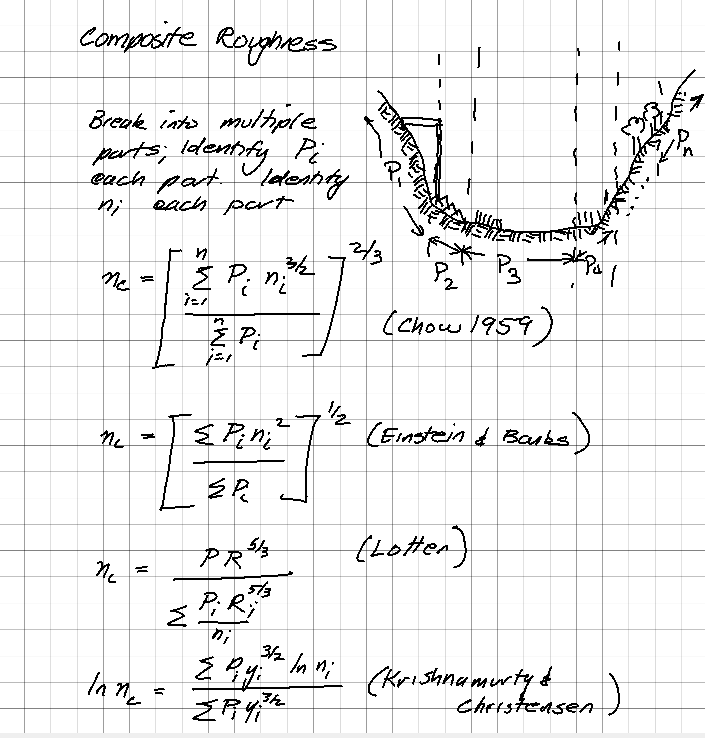 Composite Roughness
Break into multiple
parts; Identify Pi
each part. Identify
ni each part
P1 P2 P3 P4 Pn
nc = [ ∑_{i=1}^{n} Pi ni^{3/2} / ∑_{i=1}^{n} Pi ]^{2/3}
(Chow 1959)
nc = [ ∑ Pi ni^2 / ∑ Pi ]^{1/2} (Einstein & Banks)
nc = P R^{5/3} / ∑ (Pi Ri^{5/3} / ni) (Lotter)
ln nc = ∑ Pi yi^{3/2} ln ni / ∑ Pi yi^{3/2} (Krishnamurty &
Christensen)